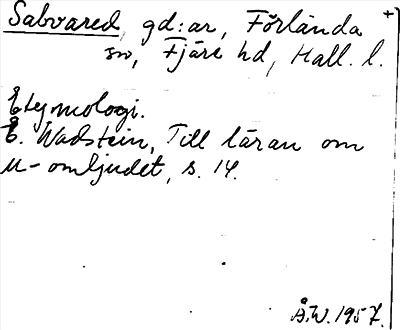 Sabvared, gd:ar, Förlanda
sn, Fjäre hd, Hall. l.
Etymologi.
E. Wadstein, Till läran om
u-omljudet, s. 14.
Å.W. 1957.